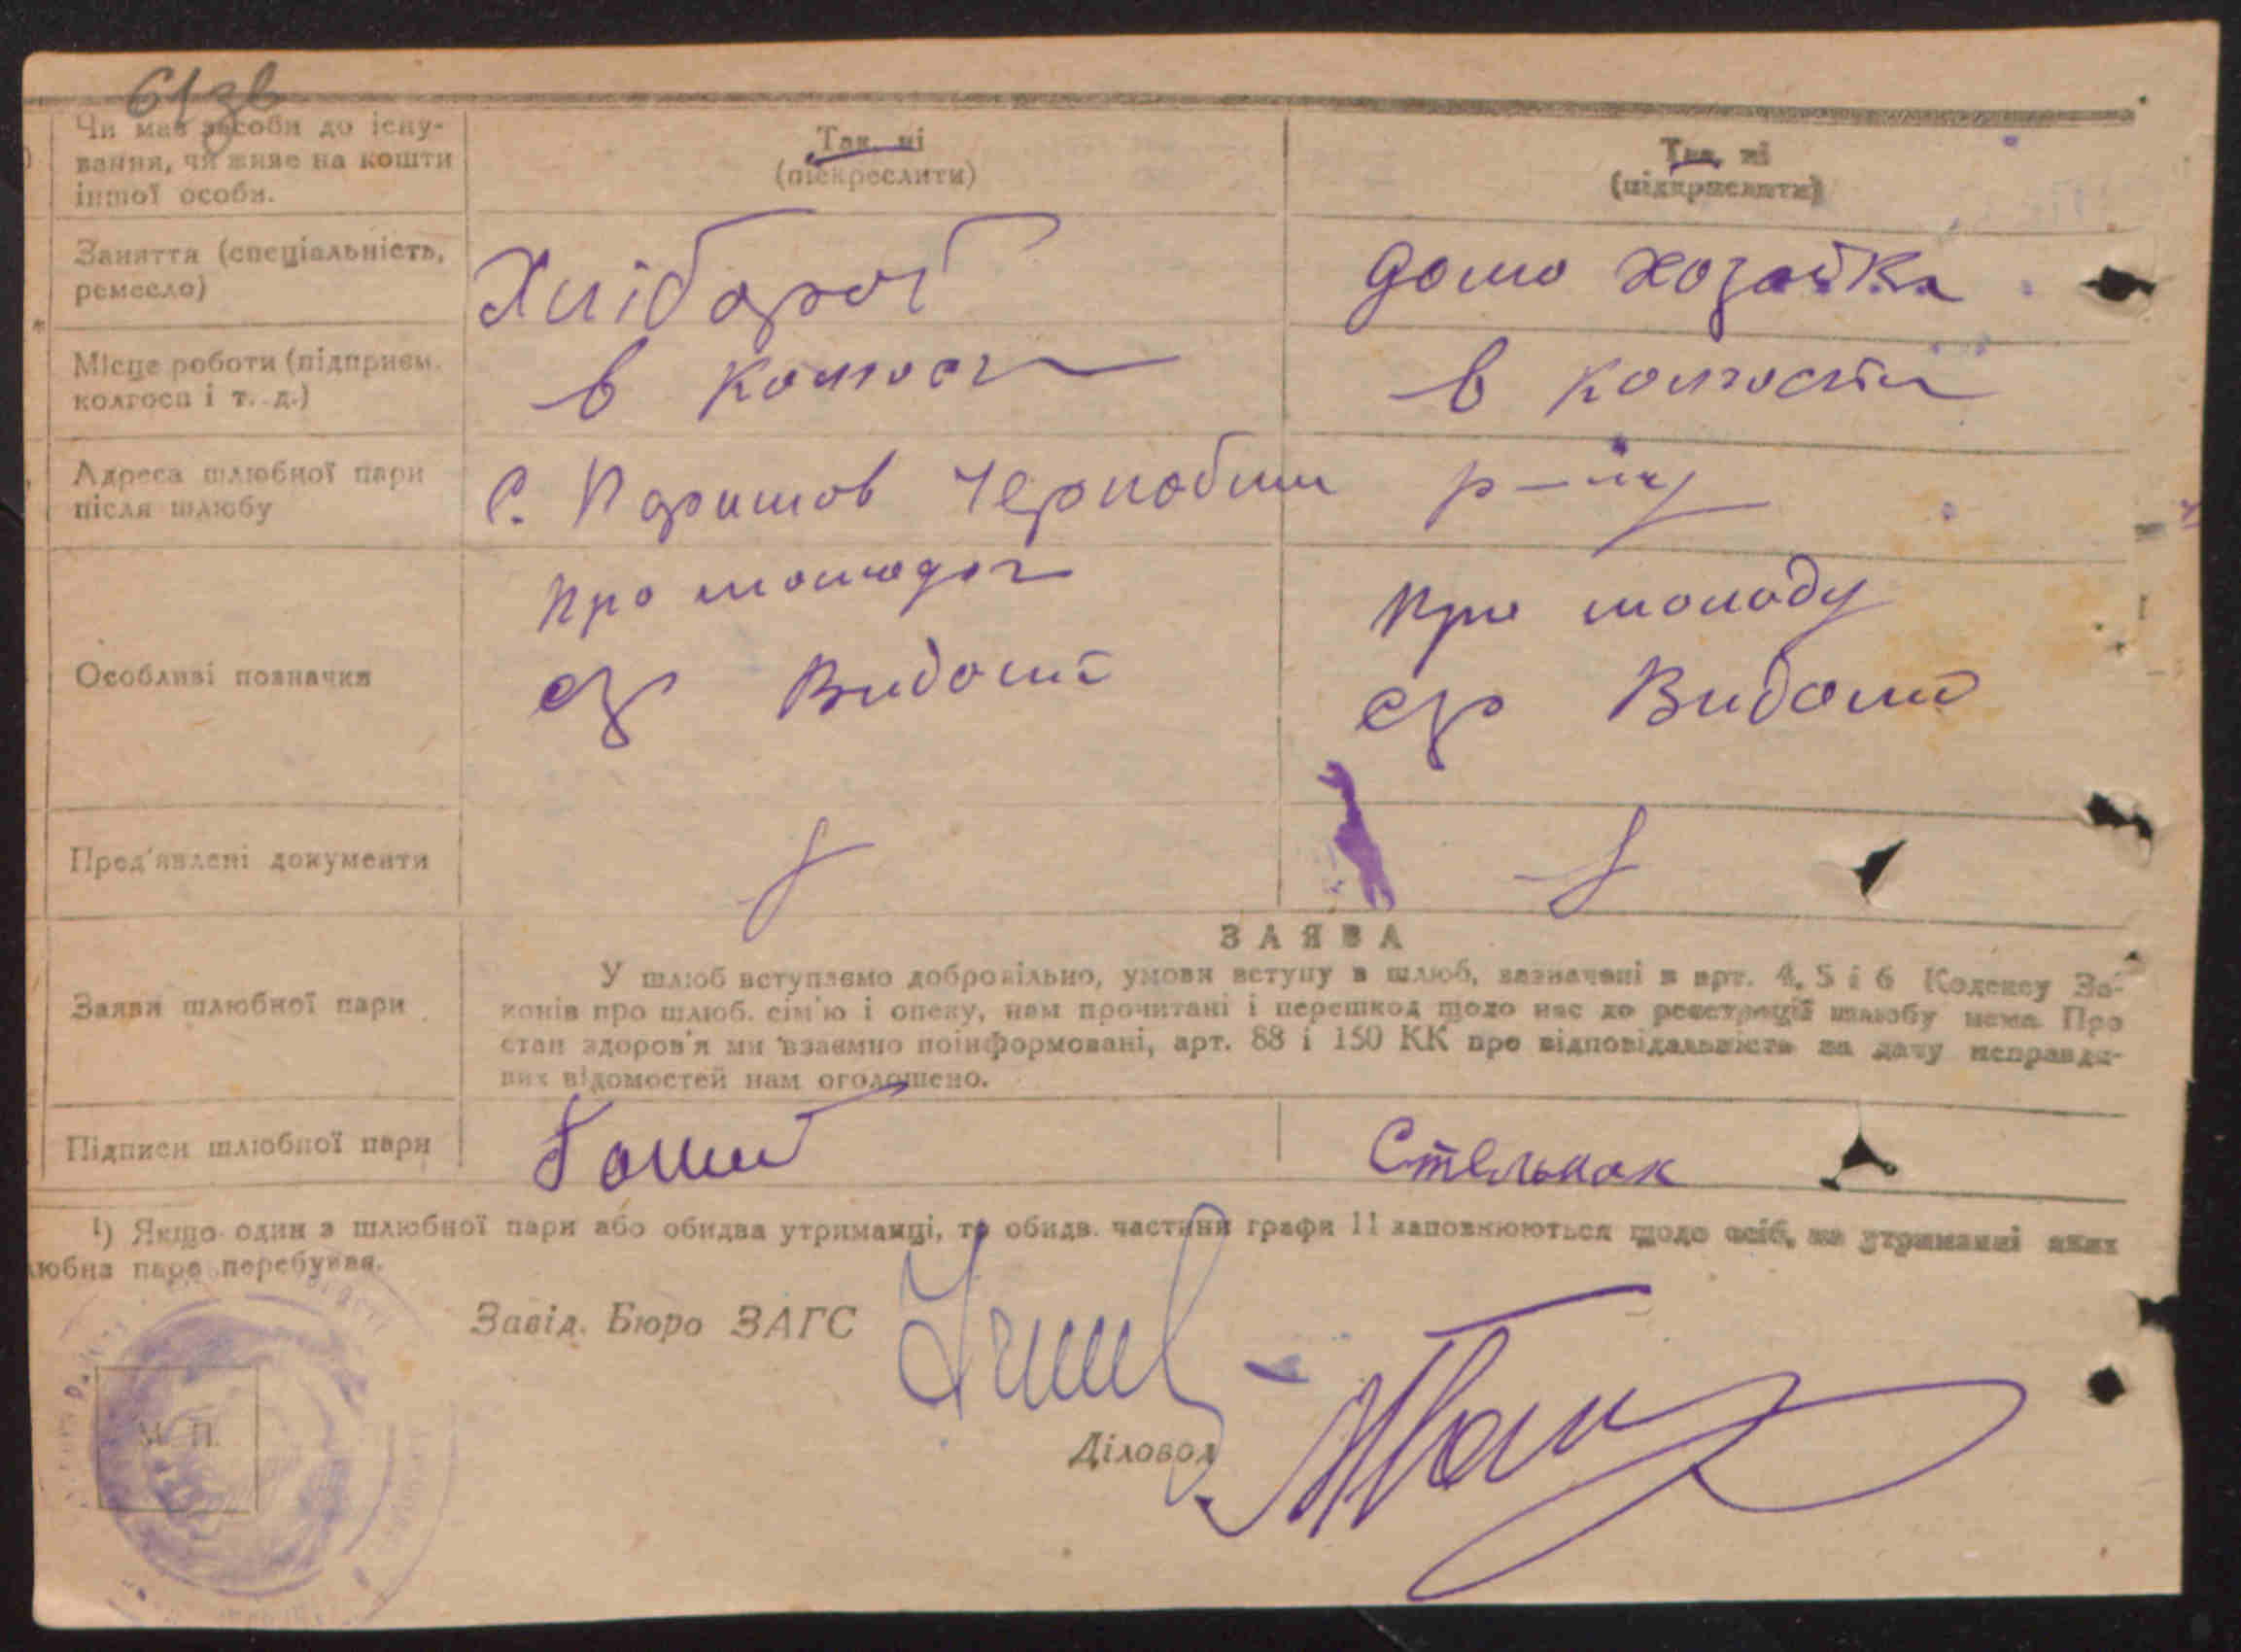 61зв
Чи має засоби до існу-
вання, чи живе на кошти
іншої особи.
Так, ні
(підкреслити)
Так, ні
(підкреслити)
Заняття (спеціальність,
ремесло)
Хлібороб
домо хозяйка
Місце роботи (підприєм.
колгосп і т. д.)
в колгосп
в колгоспі
Адреса шлюбної пари
після шлюбу
с. Паришов Чернобил р-ну
Особливі позначки
про молодог
про молоду
Пред'явлені документи
Заяви шлюбної пари
ЗАЯВА
У шлюб вступаємо добровільно, умови вступу в шлюб, зазначені в арт. 4, 5 і 6 Кодексу За-
конів про шлюб, сім'ю і опеку, нам прочитані і перешкод щодо нас до реєстрації шлюбу нема. Про
стан здоров'я ми взаємно поінформовані, арт. 88 і 150 КК про відповідальність за дачу неправди-
вих відомостей нам оголошено.
Підписи шлюбної пари
Стельмах
¹) Якщо один з шлюбної пари або обидва утриманці, то обидв. частини графи 11 заповнюються щодо осіб, на утриманні яких
любна пара перебуває.
Завід. Бюро ЗАГС
М. П.
Діловод